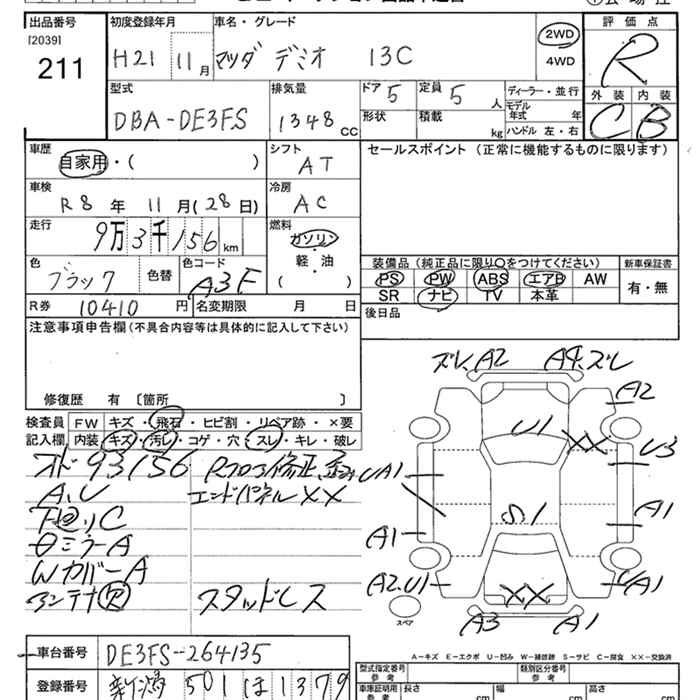 出品番号
[2039]
211
初度登録年月
H21 11月
車名・グレード
マツダ デミオ 13C
2WD
4WD
評価点
R
外装 内装
C B
型式
DBA-DE3FS
排気量
1348 CC
ドア 5
形状
定員 5 人
積載 kg
ディーラー・並行
モデル年式 年
ハンドル 左・右
車歴
自家用・( )
シフト
AT
セールスポイント (正常に機能するものに限ります)
車検
R8年 11月(28日)
冷房
AC
走行
9万3千156km
燃料
ガソリン
軽・油
( )
色
ブラック
色替
色コード
A3F
装備品 (純正品に限り〇をつけてください)
PS PW ABS エアB AW
SR ナビ TV 本革
新車保証書
有・無
R券 10410円
名変期限 月 日
後日品
注意事項申告欄(不具合内容等は具体的に記入して下さい)
修復歴 有 〔箇所 〕
検査員記入欄
FW キズ・飛石・ヒビ割・リペア跡・×要
内装 キズ・汚レ・コゲ・穴・スレ・キレ・破レ
オド93156
A,U
下廻りC
ミラーA
WカバーA
アンテナ欠
Rフロア修正,歪み
エンドパネルXX
スタッドレス
ズレ,A2 A4,ズレ
A2
U1 XX
U3
UA1
S.1
A1
A1
A2,U1
XX
UA1
スペア
A3 A1
A-キズ E-エクボ U-凹み W-補修跡 S-サビ C-腐食 XX-交換済
車台番号 DE3FS-264135
登録番号 新潟 501 ほ 1379
型式指定番号
参考
類別区分番号
参考
車庫証明用
参考
長さ cm
幅 cm
高さ cm